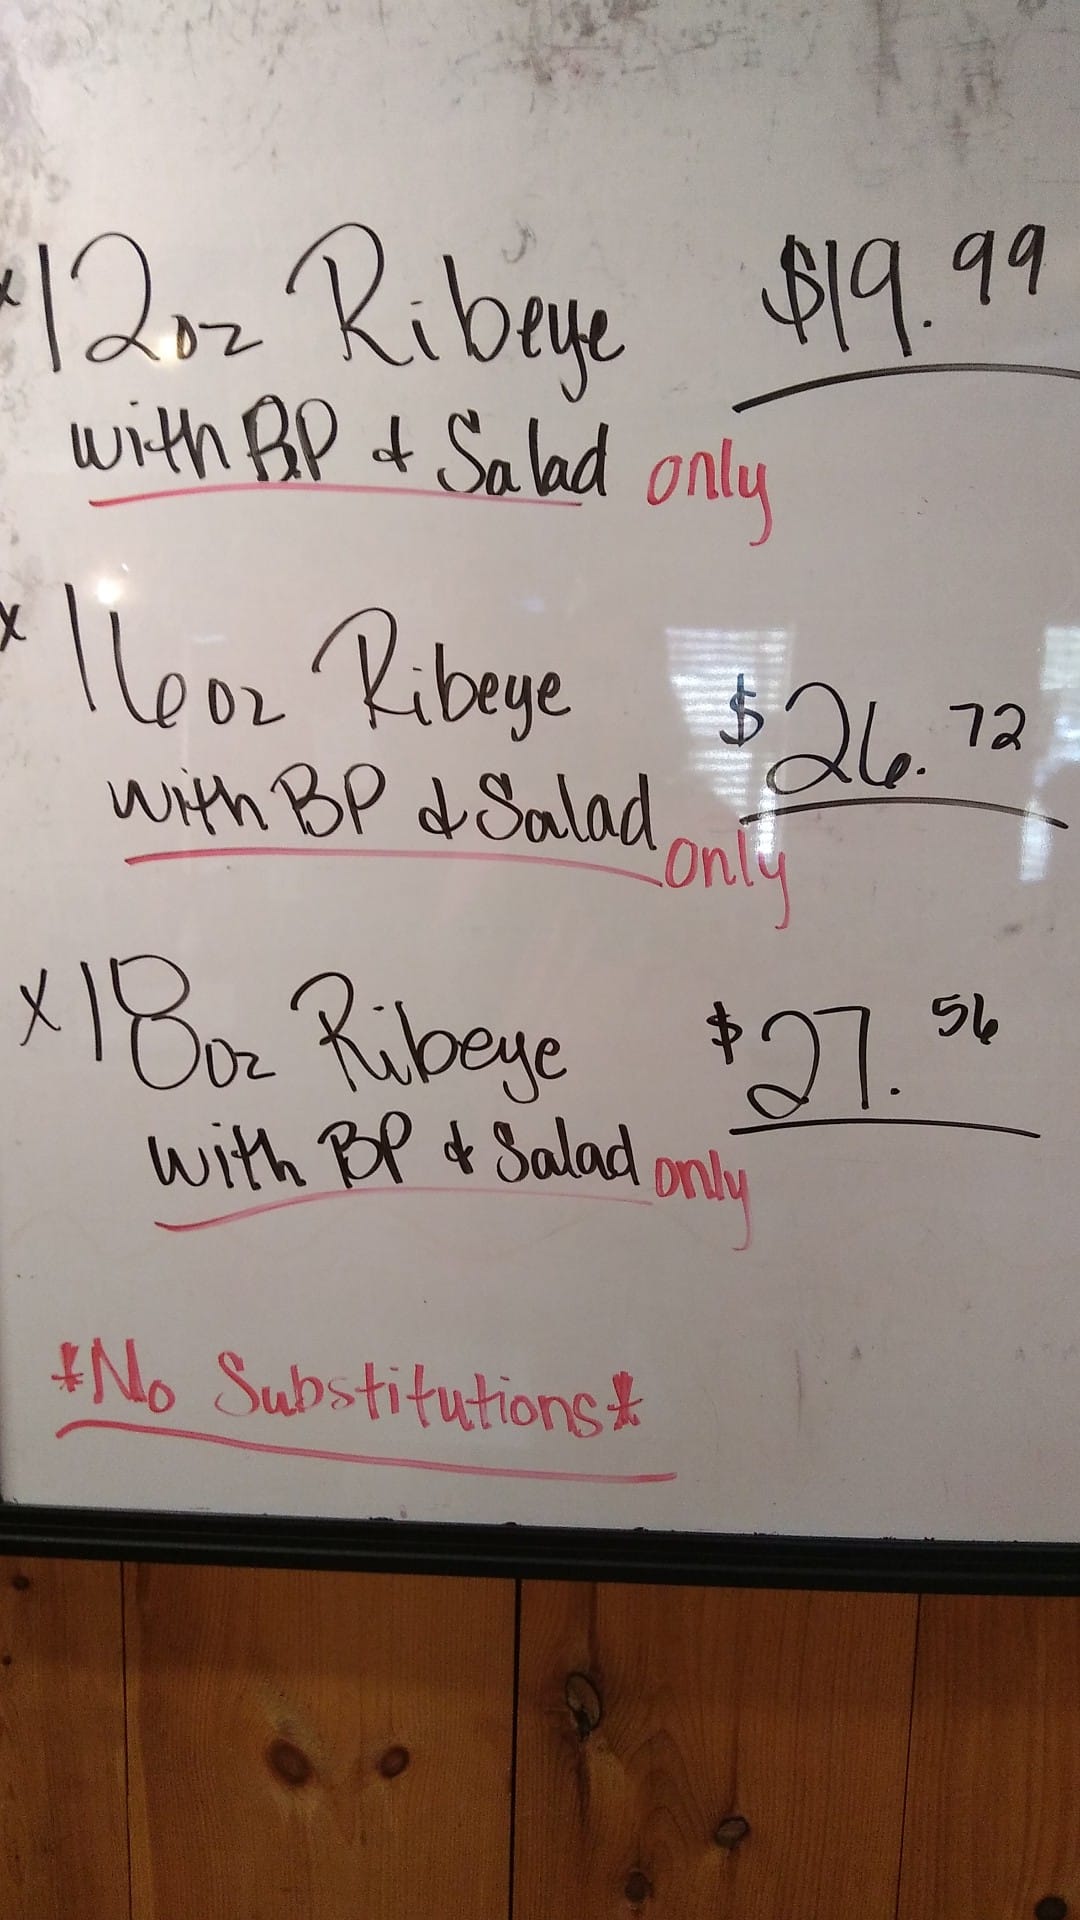 x 12oz Ribeye $19.99
with BP & Salad only
x 16oz Ribeye $26.72
with BP & Salad only
x 18oz Ribeye $27.56
with BP & Salad only
*No Substitutions*